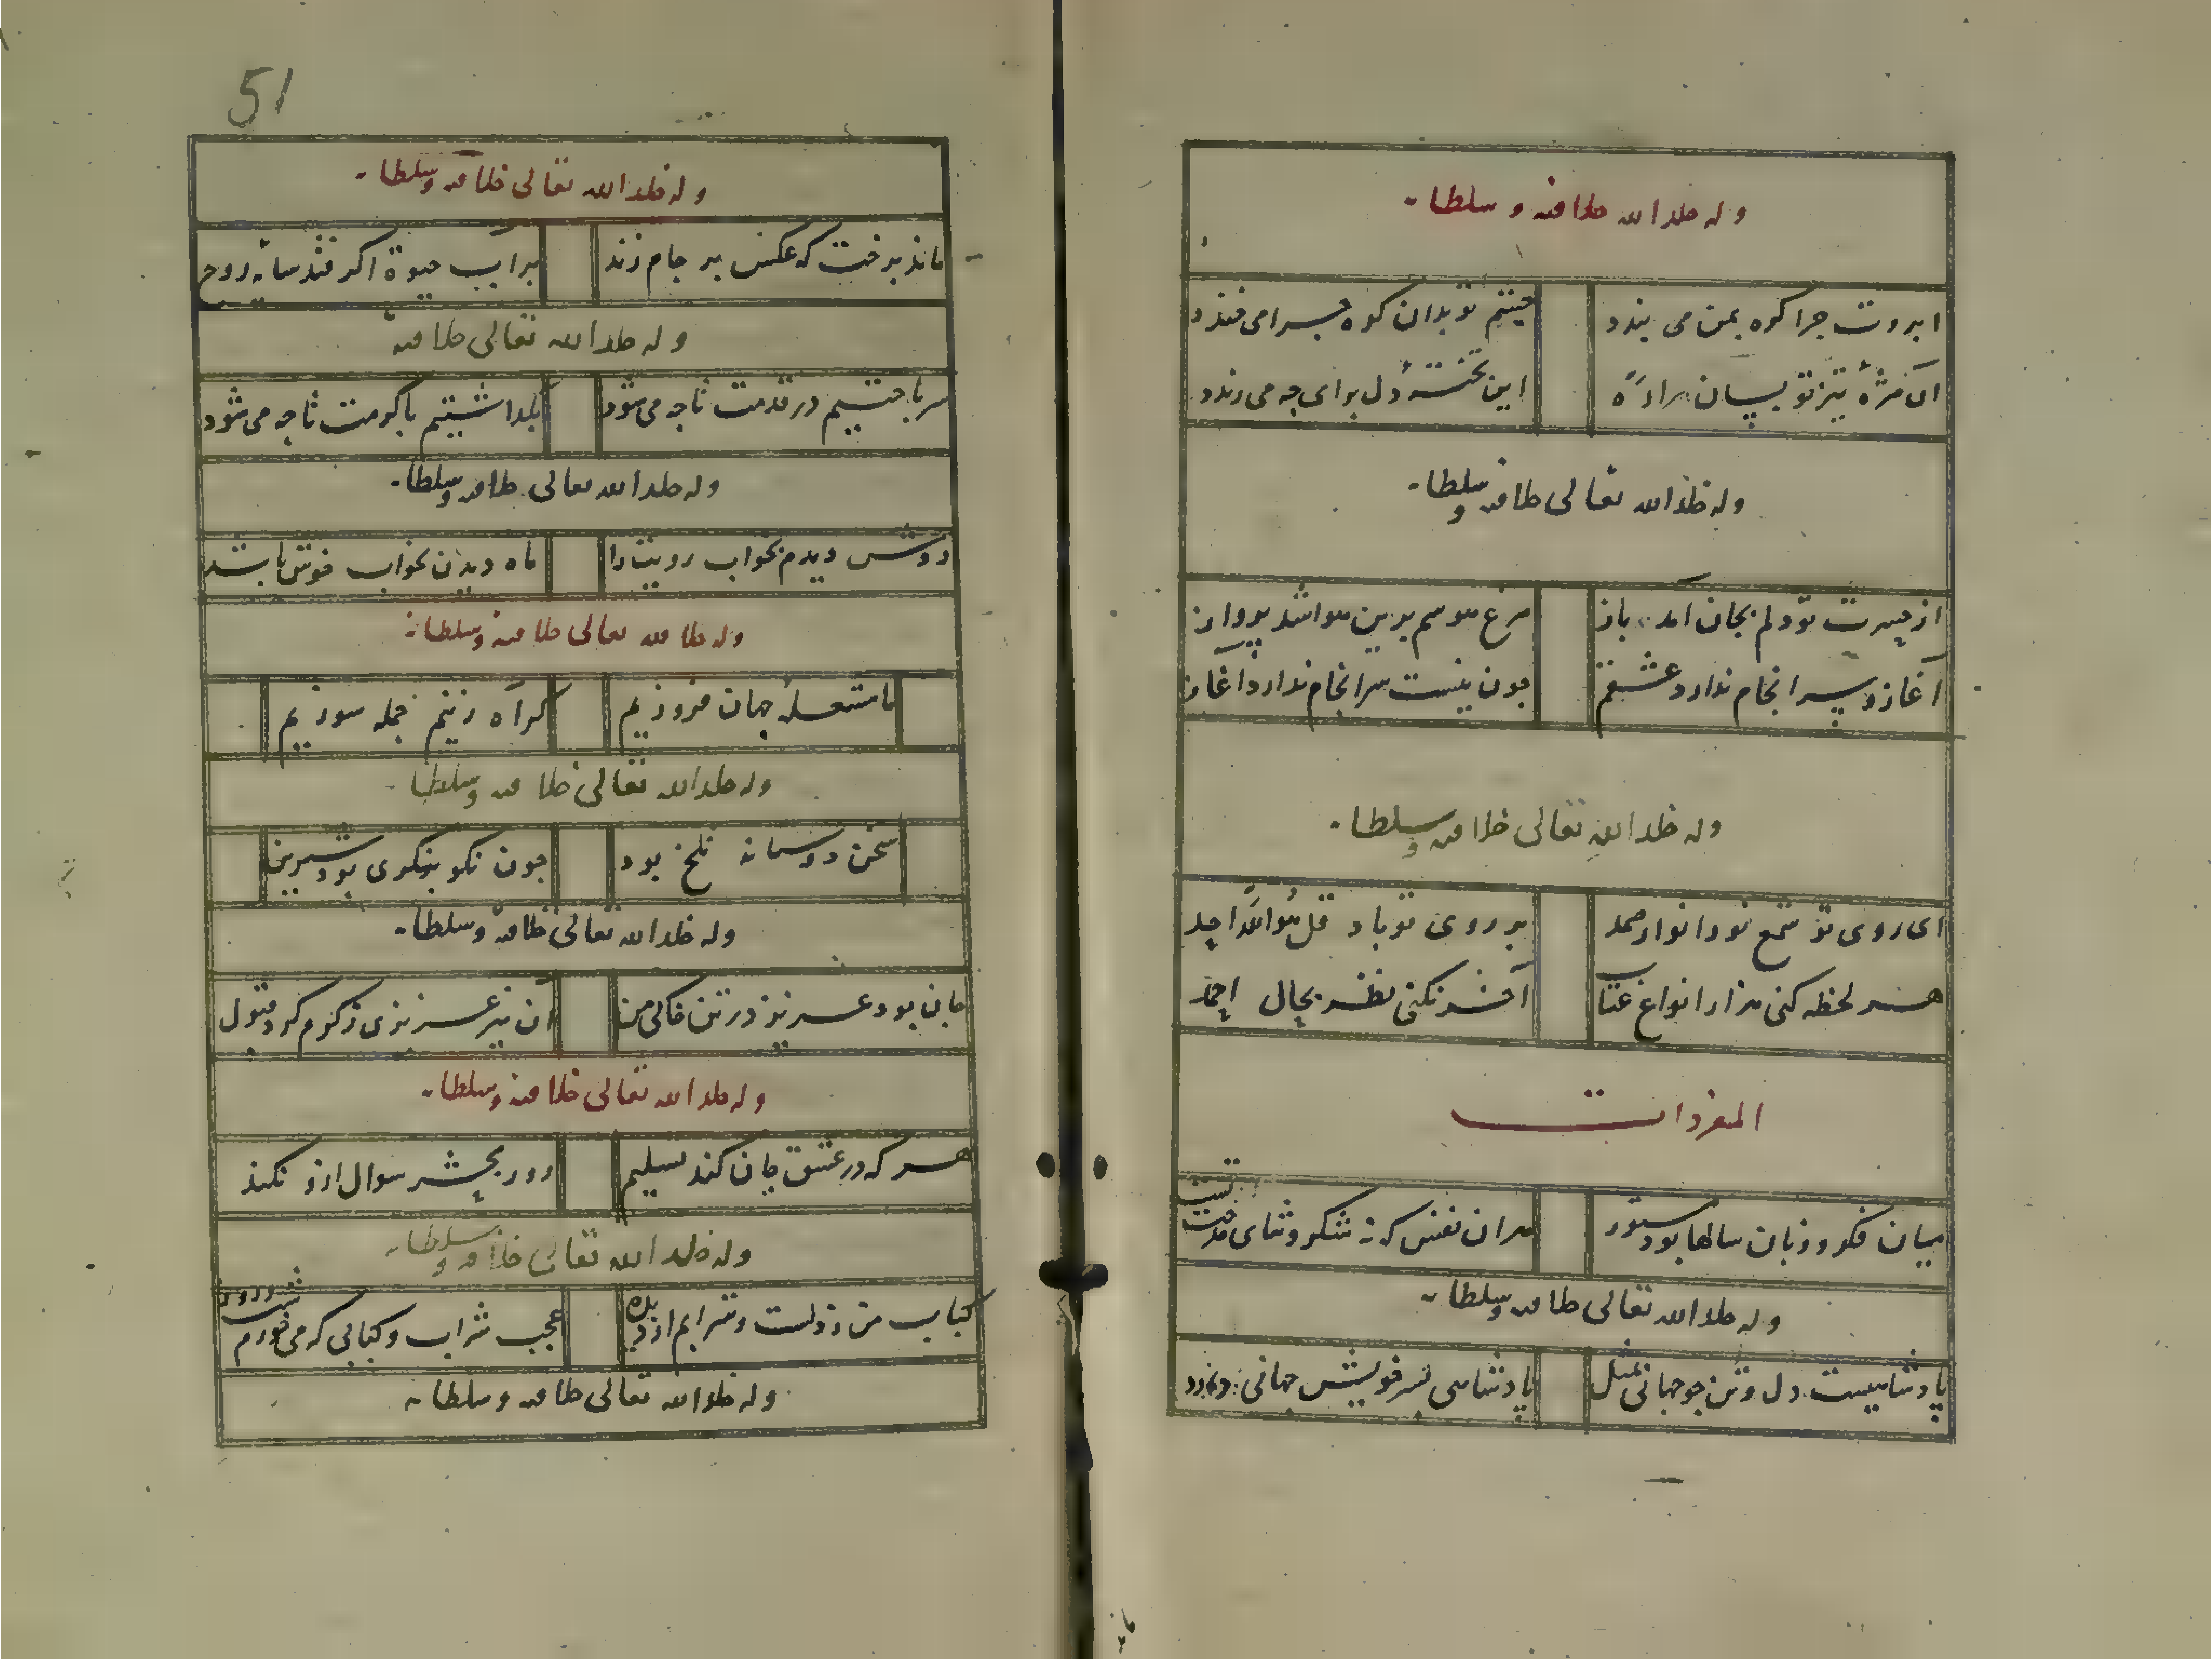 وله خلد الله خلافته و سلطانه
ابروت چرا کوه بمن می بندد
چشم تو بدان کوه چرا می فندد
این تخته دل برای چه می رندد
وله خلد الله تعالی خلافته و سلطانه
از حسرت تو دلم بجان آمد باز
مرغ هوسم برین هوا شد پرواز
آغاز و سرانجام ندارد عشقم
چون نیست سرانجام ندارد آغاز
وله خلد الله تعالی خلافته و سلطانه
ای روی تو شمع نور انوار صمد
بر روی تو باد قل هو الله احد
هر لحظه کنی هزار انواع عتاب
آخر نکنی نظر بحال احمد
المفردات
میان فکر و زبان سالها بود مستور
هران نفس که نه شکر و ثنای مدحت تست
وله خلد الله تعالی خلافته و سلطانه
پادشاهیست دل و تن چو جهانی بمثل
پادشاهی بسر خویش جهانی دارد
51
وله خلد الله تعالی خلافته و سلطانه
ماند برخت که عکس بر جام زند
بر آب حیوة اگر فتد سایه روح
وله خلد الله تعالی خلافته
سر باختیم در قدمت تا چه می شود
با کرمت تا چه می شود
وله خلد الله تعالی خلافته و سلطانه
دوش دیدم بخواب رویت را
ماه دیدن بخواب خوش باشد
وله خلد الله تعالی خلافته و سلطانه
ما شعله جهان فروزیم
گر آه زنیم جمله سوزیم
وله خلد الله تعالی خلافته و سلطانه
سخن دوستانه تلخ بود
چون نکو بنگری بود شیرین
وله خلد الله تعالی خلافته و سلطانه
جان بود عزیز در تن خاکی من
آن نیز عزیزی ز کرم کرد قبول
وله خلد الله تعالی خلافته و سلطانه
هر که در عشق جان کند تسلیم
روز محشر سوال ازو نکنند
وله خلد الله تعالی خلافته و سلطانه
کباب من ز دلست و شرابم از دیده
عجب شراب و کبابی که می خورم شب و روز
وله خلد الله تعالی خلافته و سلطانه